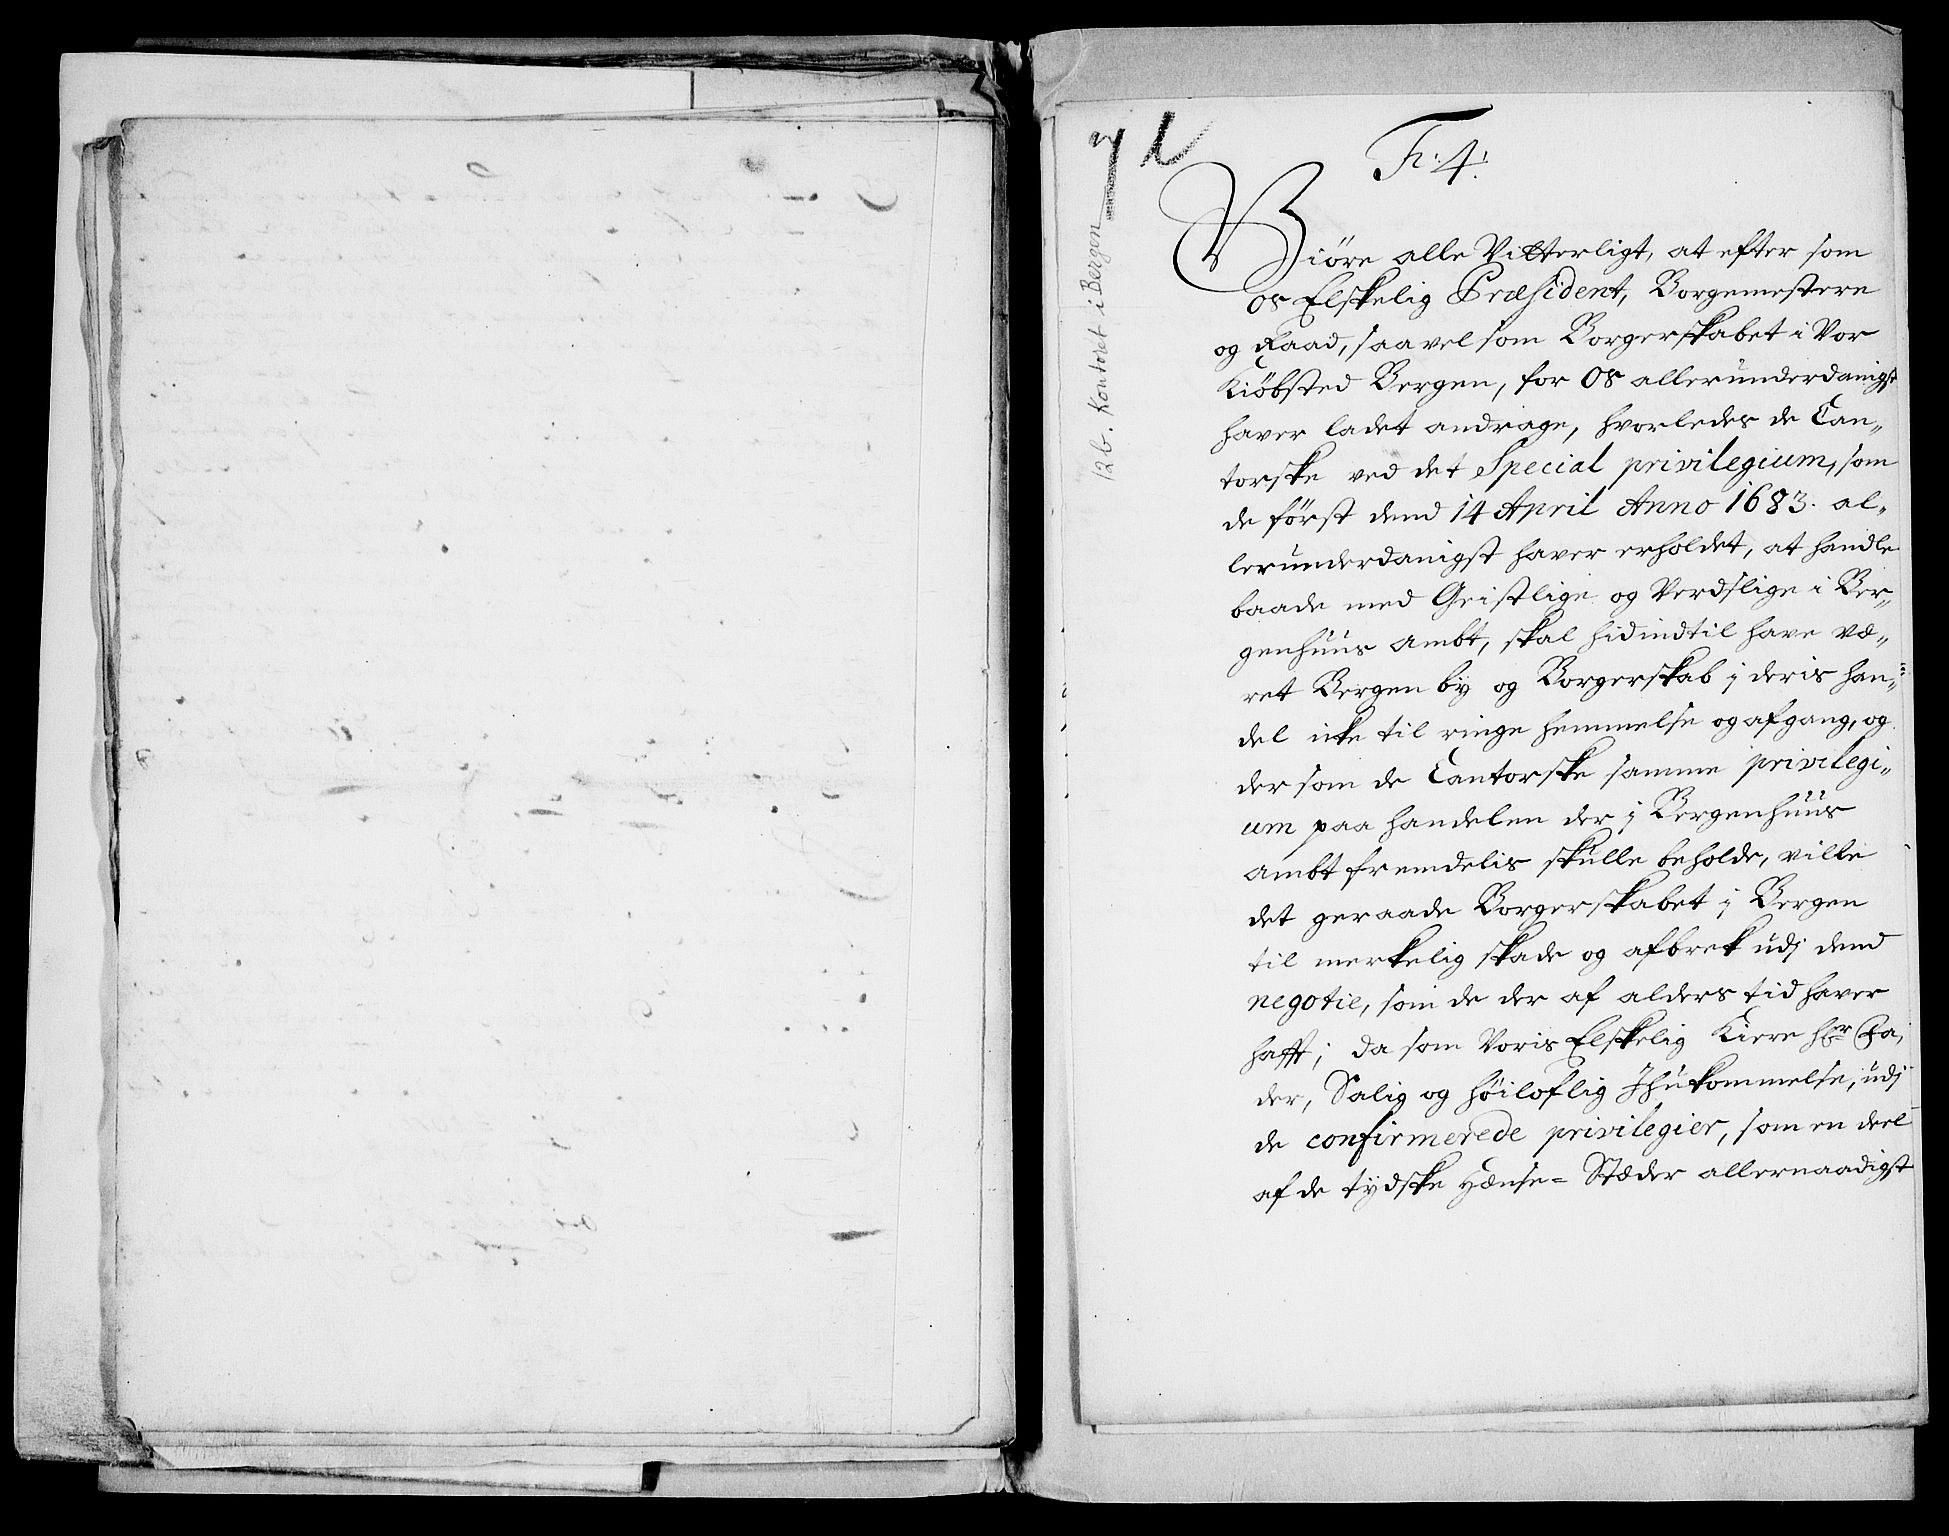 Fr: 4:
Giöre alle Vitterligt, at efter som
os Elskelig Præsident, Borgemestere
og Raad, saavel som Borgerskabet i Vor
Kiöbsted Bergen, for Os allerunderdanigst
haver ladet andrage, hvorledes de Can„
torske ved det Special privilegium, som
de först dend 14 April Anno 1683. al„
lerunderdanigst haver erholdet, at handle
baade med Geistlige og Verdslige i Ber„
genhuus Ambt, skal hidindtil have væ„
ret Bergen by og Borgerskab j deris han„
del icke til ringe hemmelse og afgang, og
der som de Cantorske samme privilegi„
um paa handelen der j Bergenhuus
Ambt fremdelis skulle beholde, ville
det geraade Borgerskabet j Bergen
til merkelig skade og afbrek udj dend
negotie, som de der af alders tid haver
hafft; da som Voris Elskelig Kiere hr Fa„
der, Salig og höiloflig Ihukommelse, udj
de confirmerede privilegier, som en deel
af de tydske Hænse= Stæder allernaadigst
12b. Kontoret i Bergen